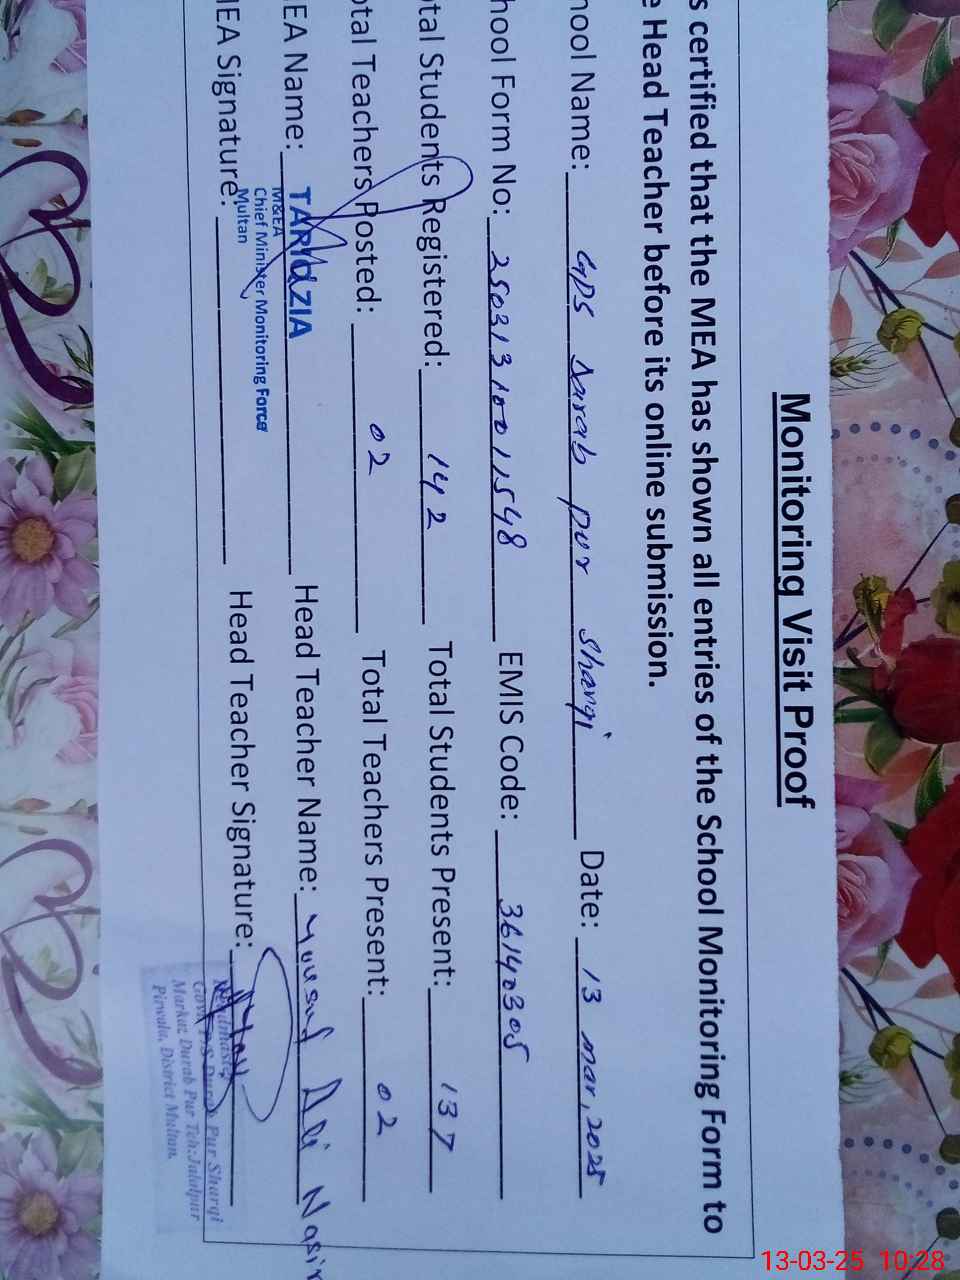 Monitoring Visit Proof
s certified that the MEA has shown all entries of the School Monitoring Form to
e Head Teacher before its online submission.
hool Name: GPS Darab pur Sharqi Date: 13 mar, 2025
hool Form No: 25031310011548 EMIS Code: 36140305
otal Students Registered: 142 Total Students Present: 137
otal Teachers Posted: 02 Total Teachers Present: 02
MEA Name: TARIQ ZIA Head Teacher Name: Yousuf Ali Nasir
M&EA
Chief Minister Monitoring Force
Multan
MEA Signature: Head Teacher Signature:
Headmaster
Govt P/S Durab Pur Sharqi
Markaz Durab Pur Teh:Jalalpur
Pirwala, District Multan.
13-03-25 10:28